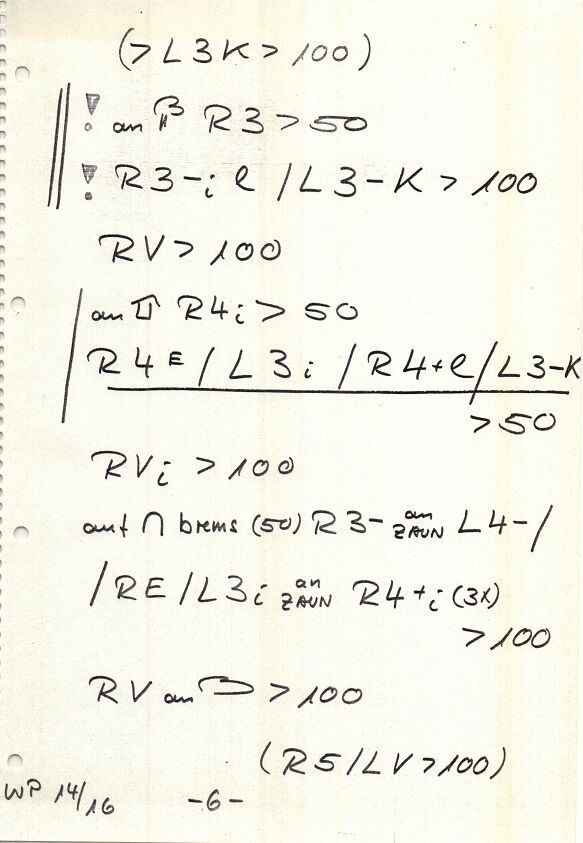 (> L3K > 100)
! an R3 > 50
! R3-i e / L3-K > 100
RV > 100
an R4i > 50
R4E / L3i / R4+e / L3-K
> 50
RVi > 100
auf ∩ brems (50) R3- an ZAUN L4- /
/ RE / L3i an ZAUN R4+i (3x)
> 100
RV an > 100
(R5 / LV > 100)
WP 14/16 -6-